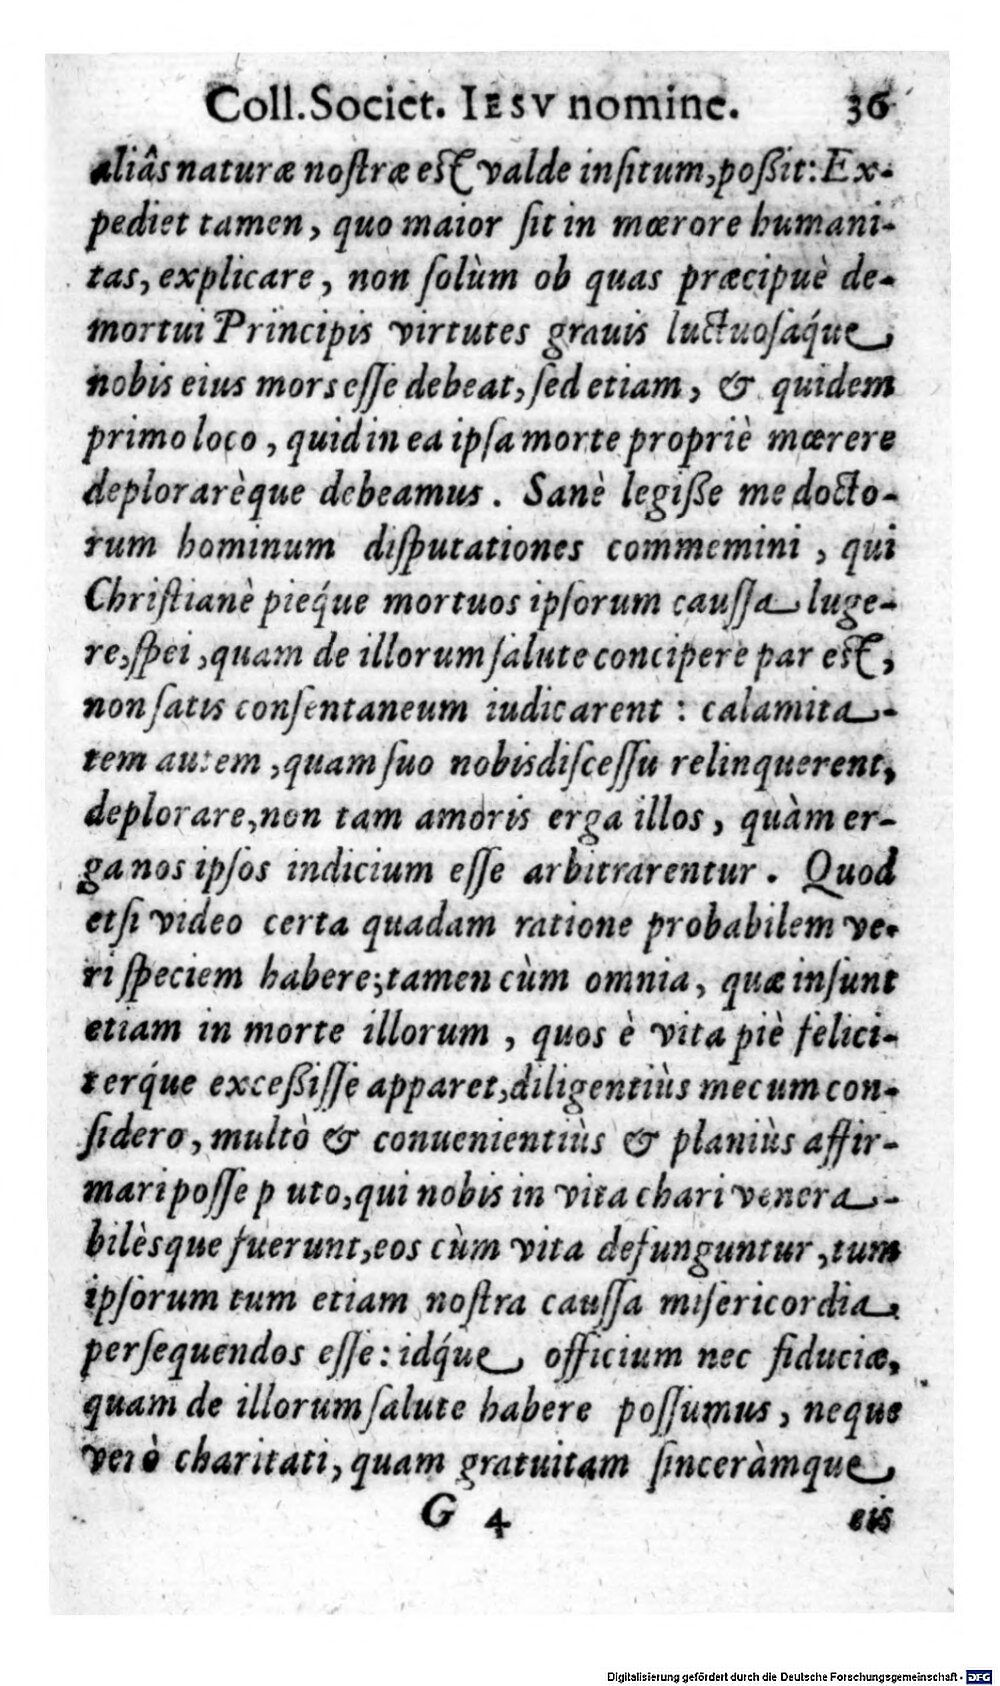 Coll. Societ. IESV nomine. 36
aliâs naturæ nostræ est valde insitum, possit: Ex-
pediet tamen, quo maior sit in mœrore humani-
tas, explicare, non solùm ob quas præcipuè de-
mortui Principis virtutes grauis luctuosáque
nobis eius mors esse debeat, sed etiam, & quidem
primo loco, quid in ea ipsa morte propriè mœrere
deplorarèque debeamus. Sanè legisse me docto-
rum hominum disputationes commemini, qui
Christianè pieq́ue mortuos ipsorum caussa luge-
re, spei, quam de illorum salute concipere par est,
non satis consentaneum iudicarent: calamita-
tem autem, quam suo nobis discessu relinquerent,
deplorare, non tam amoris erga illos, quàm er-
ga nos ipsos indicium esse arbitrarentur. Quod
etsi video certa quadam ratione probabilem ve-
ri speciem habere; tamen cùm omnia, quæ insunt
etiam in morte illorum, quos è vita piè felici-
terq́ue excessisse apparet, diligentiùs mecum con-
sidero, multò & conuenientiùs & planiùs affir-
mari posse puto, qui nobis in vita chari venera-
bilèsque fuerunt, eos cùm vita defunguntur, tum
ipsorum tum etiam nostra caussa misericordia
persequendos esse: idq́ue officium nec fiduciæ,
quam de illorum salute habere possumus, neque
verò charitati, quam gratuitam sinceràmque
G 4 eis
Digitalisierung gefördert durch die Deutsche Forschungsgemeinschaft - DFG